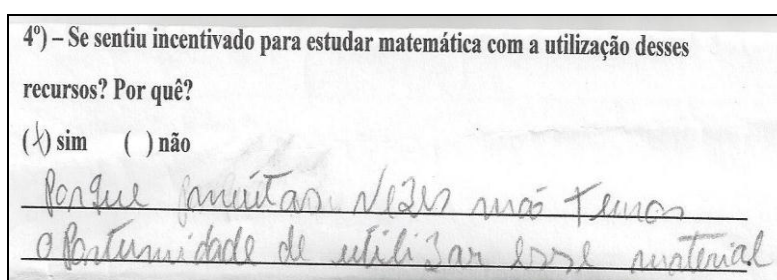 4º) – Se sentiu incentivado para estudar matemática com a utilização desses
recursos? Por quê?
(X) sim ( ) não
Porque muitas vezes não temos
oportunidade de utilizar esse material